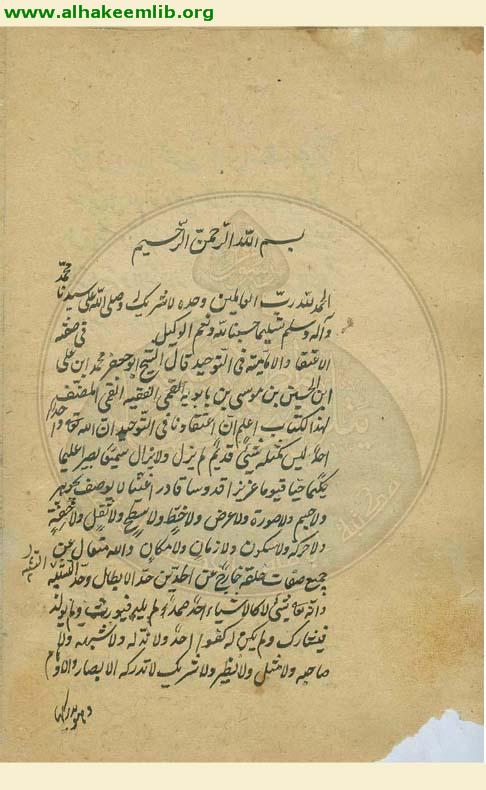 www.alhakeemlib.org
بسم الله الرحمن الرحيم
الحمد لله رب العالمين وحده لا شريك له وصلى الله على سيدنا محمد
وآله وسلم تسليما حسبنا الله ونعم الوكيل. في صفة
الاعتقاد الامامية في التوحيد قال الشيخ ابو جعفر محمد ابن علي
ابن الحسين بن موسى بن بابويه القمي الفقيه المصنف
لهذا الكتاب اعلم ان اعتقادنا في التوحيد ان الله تعالى واحد
احد ليس كمثله شيئ قديم لم يزل ولا يزال سميعا بصيرا عليما
حكيما حيا قيوما عزيزا قدوسا قادرا غنيا لا يوصف بجوهر
ولا جسم ولا صورة ولا عرض ولا خط ولا سطح ولا ثقل ولا خفة
ولا حركة ولا سكون ولا زمان ولا مكان والله متعال عن
جميع صفات خلقه خارج عن الحدين حد الابطال وحد التشبيه
وانه تعالى شيئ لا كالاشياء احد صمد لم يلد فيورث ولم يولد
فيشارك ولم يكن له كفوا احد ولا ند له ولا شبه ولا
صاحبة ولا مثل ولا نظير ولا شريك لا تدركه الابصار والاوهام
وهو يدركها